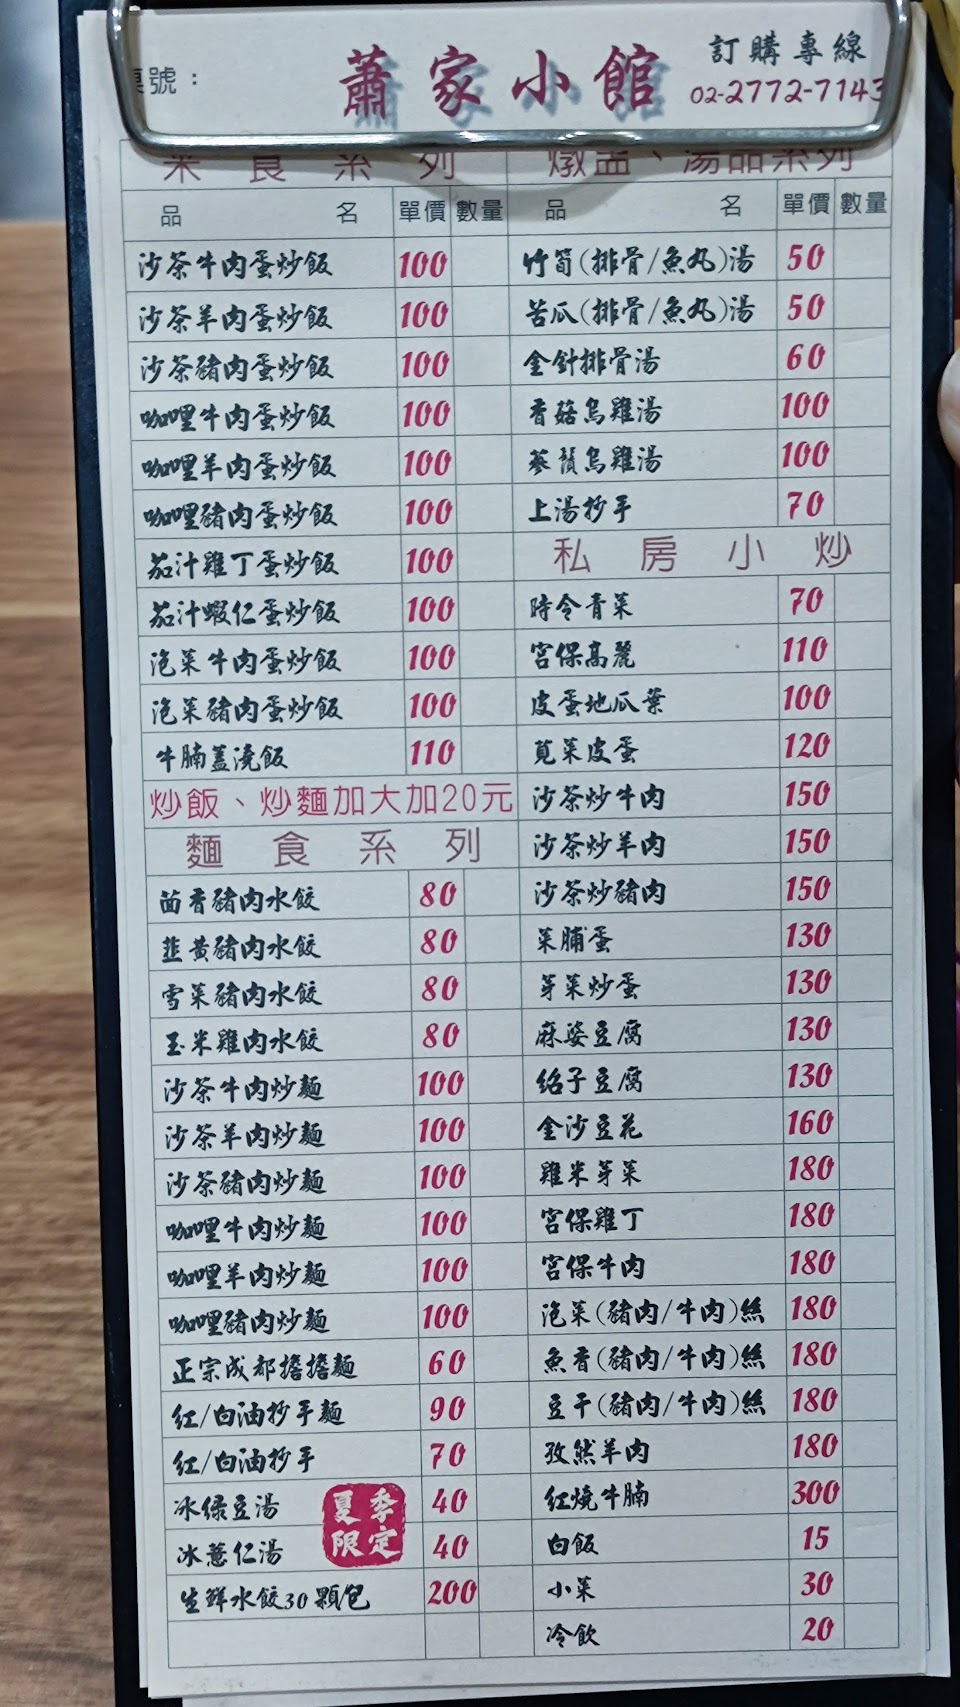 桌號：
蕭家小館
訂購專線
02-2772-7143
米食系列
品名 單價 數量
沙茶牛肉蛋炒飯 100
沙茶羊肉蛋炒飯 100
沙茶豬肉蛋炒飯 100
咖哩牛肉蛋炒飯 100
咖哩羊肉蛋炒飯 100
咖哩豬肉蛋炒飯 100
茄汁雞丁蛋炒飯 100
茄汁蝦仁蛋炒飯 100
泡菜牛肉蛋炒飯 100
泡菜豬肉蛋炒飯 100
牛腩蓋澆飯 110
炒飯、炒麵加大加20元
麵食系列
茴香豬肉水餃 80
韭黃豬肉水餃 80
雪菜豬肉水餃 80
玉米雞肉水餃 80
沙茶牛肉炒麵 100
沙茶羊肉炒麵 100
沙茶豬肉炒麵 100
咖哩牛肉炒麵 100
咖哩羊肉炒麵 100
咖哩豬肉炒麵 100
正宗成都擔擔麵 60
紅/白油抄手麵 90
紅/白油抄手 70
冰綠豆湯 40
冰薏仁湯 40
夏季
限定
生鮮水餃30顆/包 200
燉盅、湯品系列
品名 單價 數量
竹筍(排骨/魚丸)湯 50
苦瓜(排骨/魚丸)湯 50
金針排骨湯 60
香菇烏雞湯 100
蔘鬚烏雞湯 100
上湯抄手 70
私房小炒
時令青菜 70
宮保高麗 110
皮蛋地瓜葉 100
莧菜皮蛋 120
沙茶炒牛肉 150
沙茶炒羊肉 150
沙茶炒豬肉 150
菜脯蛋 130
芽菜炒蛋 130
麻婆豆腐 130
紹子豆腐 130
金沙豆花 160
雞米芽菜 180
宮保雞丁 180
宮保牛肉 180
泡菜(豬肉/牛肉)絲 180
魚香(豬肉/牛肉)絲 180
豆干(豬肉/牛肉)絲 180
孜然羊肉 180
紅燒牛腩 300
白飯 15
小菜 30
冷飲 20